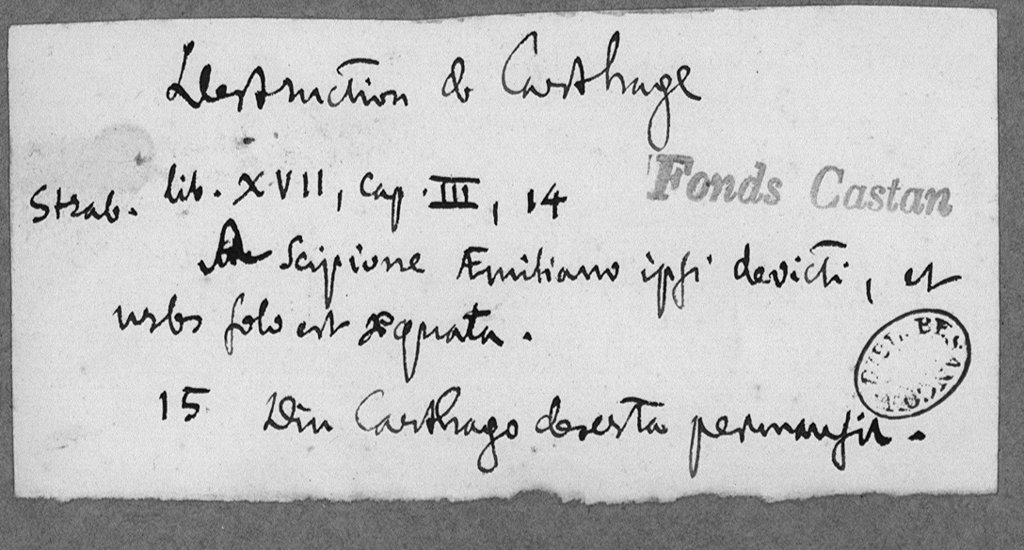 Destruction de Carthage
Strab. lib. XVII, Cap. III, 14
Fonds Castan
A Scipione Æmiliano ipsi devicti, et
urbs solo est æquata.
BIBL. BESANÇON
15 Diu Carthago deserta permansit.